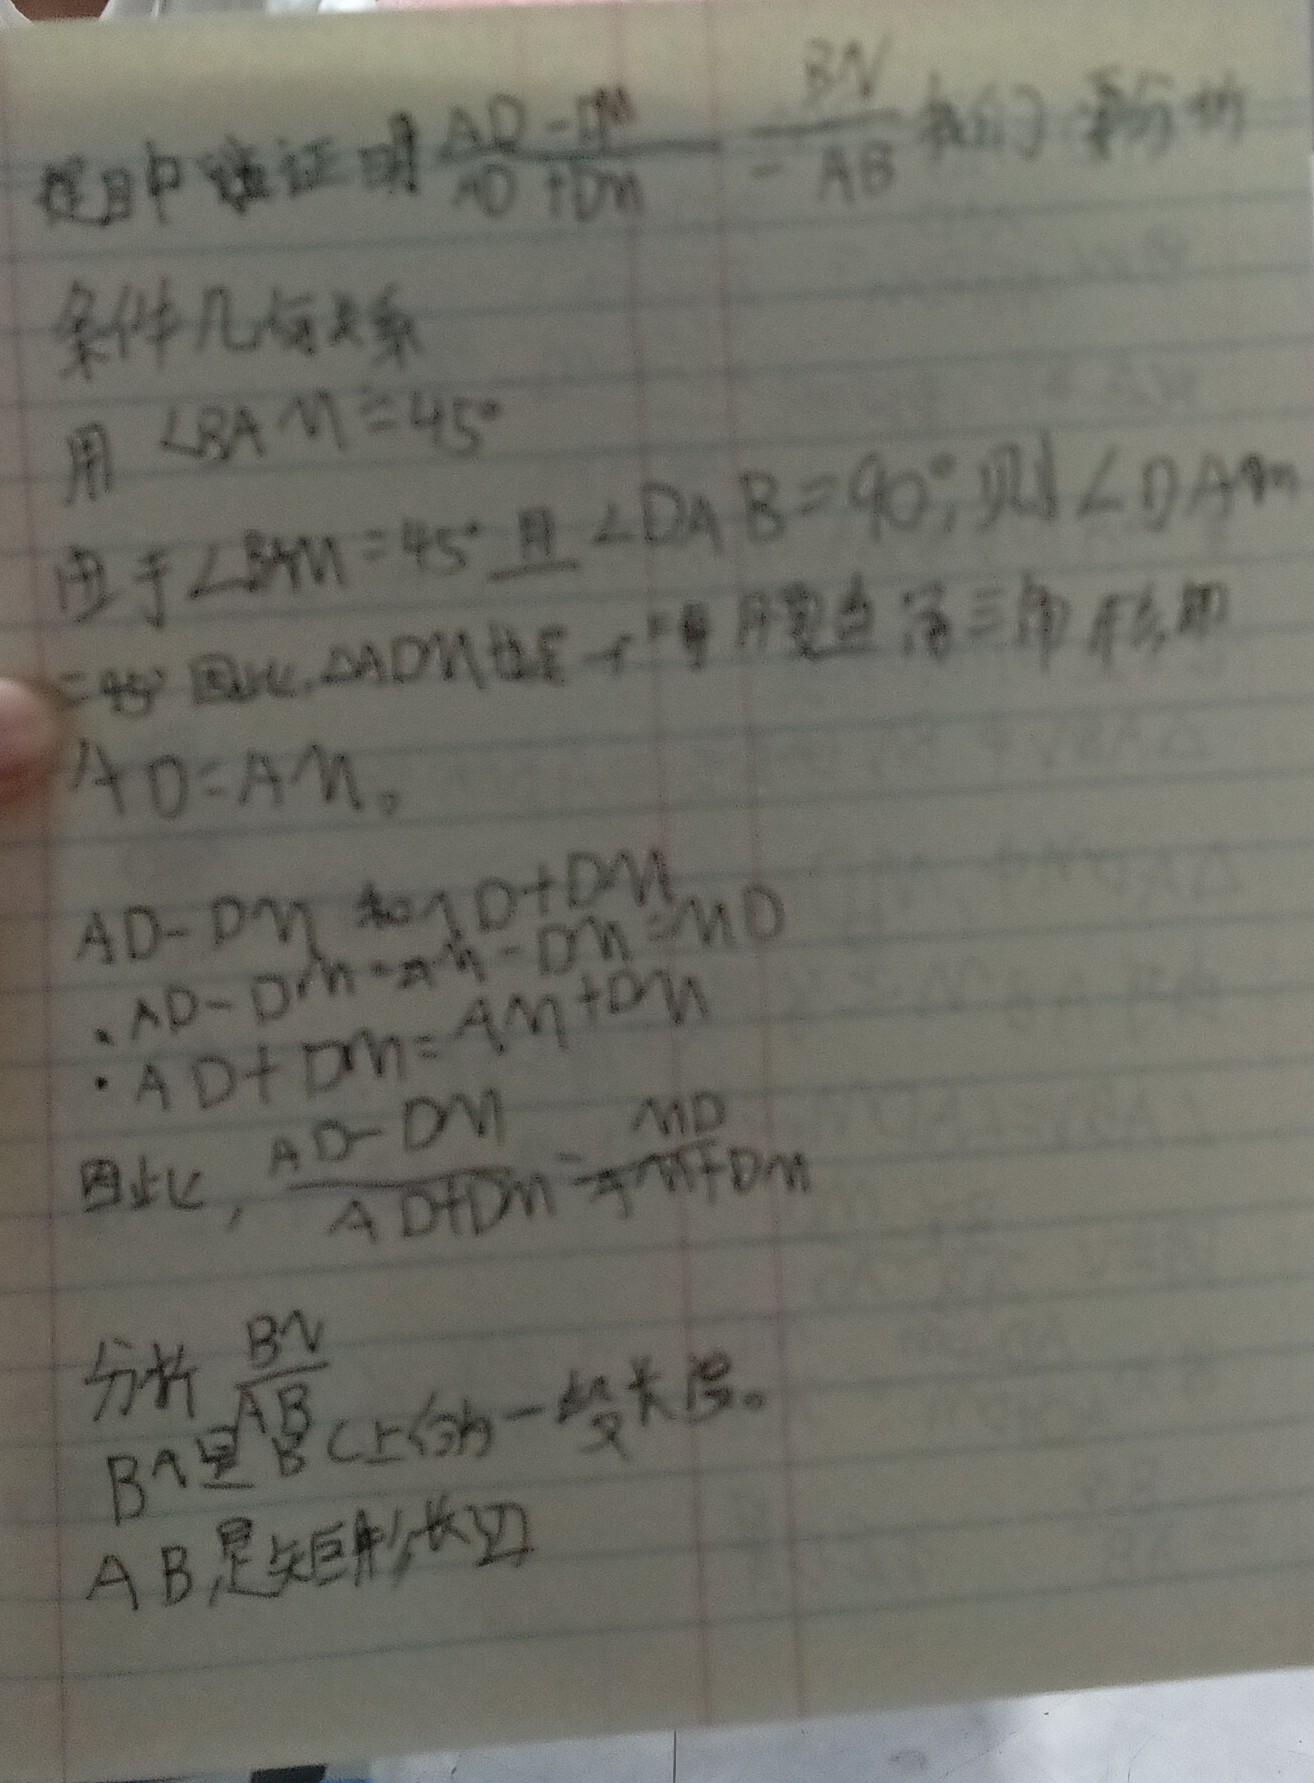 题目中难证明 AD-DM/AD+DM = BN/AB 我们需分析
条件几何关系
用 ∠BAM=45°
由于∠BAM=45°且∠DAB=90°,则∠DAM
=45°因此,△ADM也是一个等腰直角三角形,即
AD=AM。
AD-DM 和AD+DM
·AD-DM=AM-DM=MD
·AD+DM=AM+DM
因此, AD-DM/AD+DM = MD/AM+DM
分析 BN/AB
BN是BC上的一段长度。
AB是矩形长边